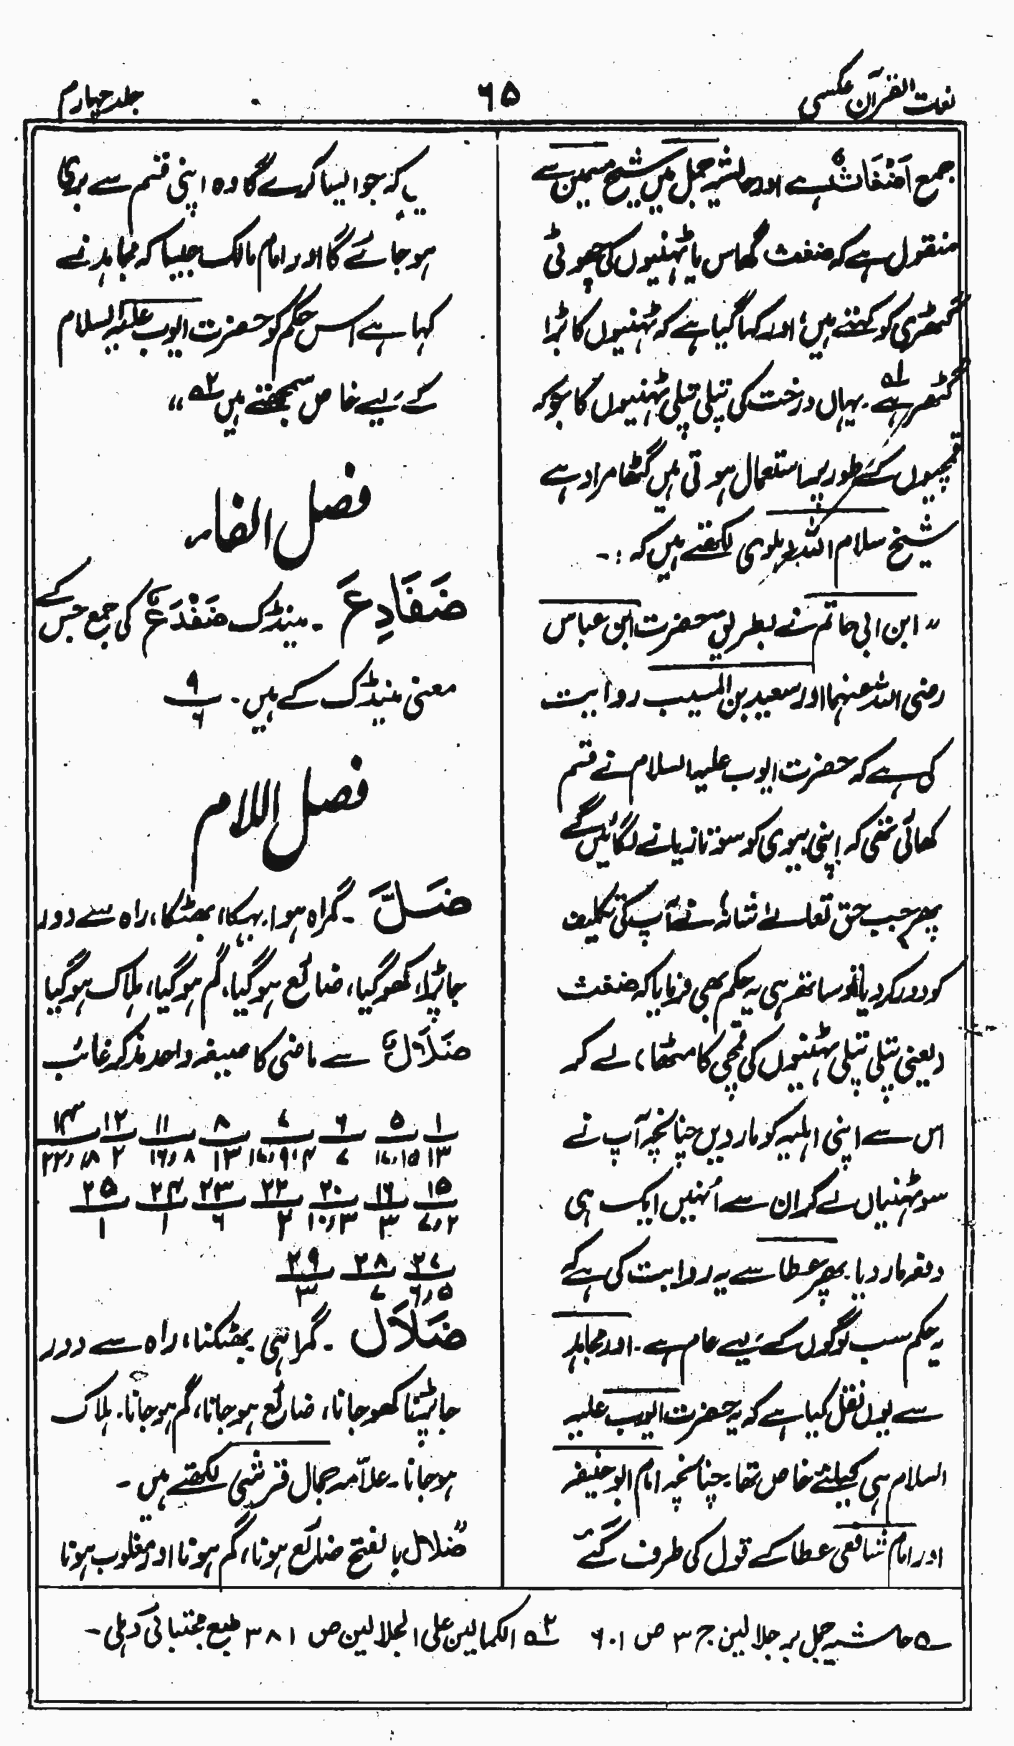 لغت القرآن عکسی
۶۵
جلد چہارم
جمع اَضْغَاثٌ ہے اور حاشیہ جمل میں شیخ سمین سے
منقول ہے کہ ضغث گھاس یا ٹہنیوں کی چھوٹی
گٹھڑی کو کہتے ہیں، اور کہا گیا ہے کہ ٹہنیوں کا بڑا
گٹھر ہے ۱؎. یہاں درخت کی پتلی پتلی ٹہنیوں کا جو کہ
قمچیوں کے طور پر استعمال ہوتی ہیں گٹھا مراد ہے
شیخ سلام اللہ دہلوی لکھتے ہیں کہ :۔
" ابن ابی حاتم نے بطریق حضرت ابن عباس
رضی اللہ عنہما اور سعید بن المسیب روایت
کی ہے کہ حضرت ایوب علیہ السلام نے قسم
کھائی تھی کہ اپنی بیوی کو سو تازیانے لگائیں گے
پھر جب حق تعالےٰ شانہٗ نے آپ کی تکلیف
کو دور کر دیا تو ساتھ ہی یہ حکم بھی فرمایا کہ ضغث
(یعنی پتلی پتلی ٹہنیوں کی قمچی کا مٹھا) لے کر
اس سے اپنی اہلیہ کو مار دیں چنانچہ آپ نے
سو ٹہنیاں لے کر ان سے اُنہیں ایک ہی
دفعہ مار دیا. پھر عطا سے یہ روایت کی ہے کہ
یہ حکم سب لوگوں کے لیے عام ہے. اور مجاہد
سے یوں نقل کیا ہے کہ یہ حضرت ایوب علیہ
السلام ہی کیلئے خاص تھا. چنانچہ امام ابو حنیفہ
اور امام شافعی عطا کے قول کی طرف گئے
ہیں کہ جو ایسا کرے گا وہ اپنی قسم سے بری
ہو جائے گا اور امام مالک جیسا کہ مجاہد نے
کہا ہے اس حکم کو حضرت ایوب علیہ السلام
کے لیے خاص سمجھتے ہیں ۲؎ "
فصل الفاء
ضَفَادِعَ ۔ مینڈک ضَفْدَعٌ کی جمع جس کے
معنی مینڈک کے ہیں ۔ ۹/۶
فصل اللام
ضَلَّ ۔ گمراہ ہوا. بہکا، بھٹکا، راہ سے دور
جا پڑا، کھو گیا، ضائع ہو گیا، گم ہو گیا، ہلاک ہو گیا
ضَلَالٌ سے ماضی کا صیغہ واحد مذکر غائب
۱/۱۳ ۵/۱۵،۱۷ ۶/۷ ۷/۴،۹،۱۷ ۸/۱۳ ۱۱/۸،۱۶ ۱۲/۲ ۱۴/۱۸،۲۲
۱۵/۲،۷ ۱۶/۳ ۲۰/۳،۱۰ ۲۲/۲ ۲۳/۶ ۲۴/۱ ۲۵/۱
۲۷/۵،۶ ۲۸/۷ ۲۹/۳
ضَلَال ۔ گمراہی بھٹکنا، راہ سے دور
جا پڑنا کھو جانا، ضائع ہو جانا، گم ہو جانا. ہلاک
ہو جانا ۔ علامہ جمال قرشی لکھتے ہیں ۔
"ضلال بالفتح ضائع ہونا، گم ہونا اور مغلوب ہونا
۱؎ حاشیہ جمل بر جلالین ج ۳ ص ۶۰۱ ۲؎ الکمالین علی الجلالین ص ۳۸۱ طبع مجتبائی دہلی ۔